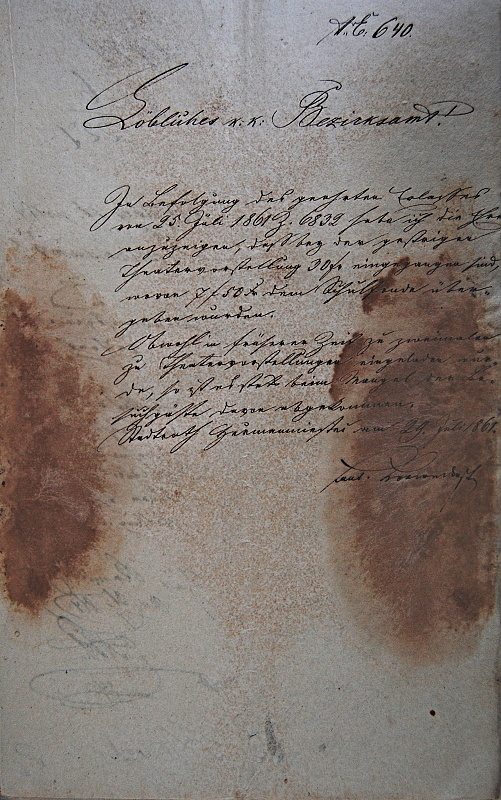 N. E. 640.
Löbliches k. k. Bezirksamt!
In Befolgung des geehrten Erlasses
vom 25 Juli 1861 Z. 6832 habe ich die Ehre
anzuzeigen, daß bey der gestrigen
Theatervorstellung 30 fr eingegangen sind
wovon 7 f 50 Xr dem Schulfonde über-
geben wurden.
Obwohl in früherer Zeit zu zweimalen
zu Theatervorstellungen eingeladen wur-
de, so ist es stets beim Mangel der Be-
suchgäste davon abgekommen.
Stadtrath am 29 Juli 1861.